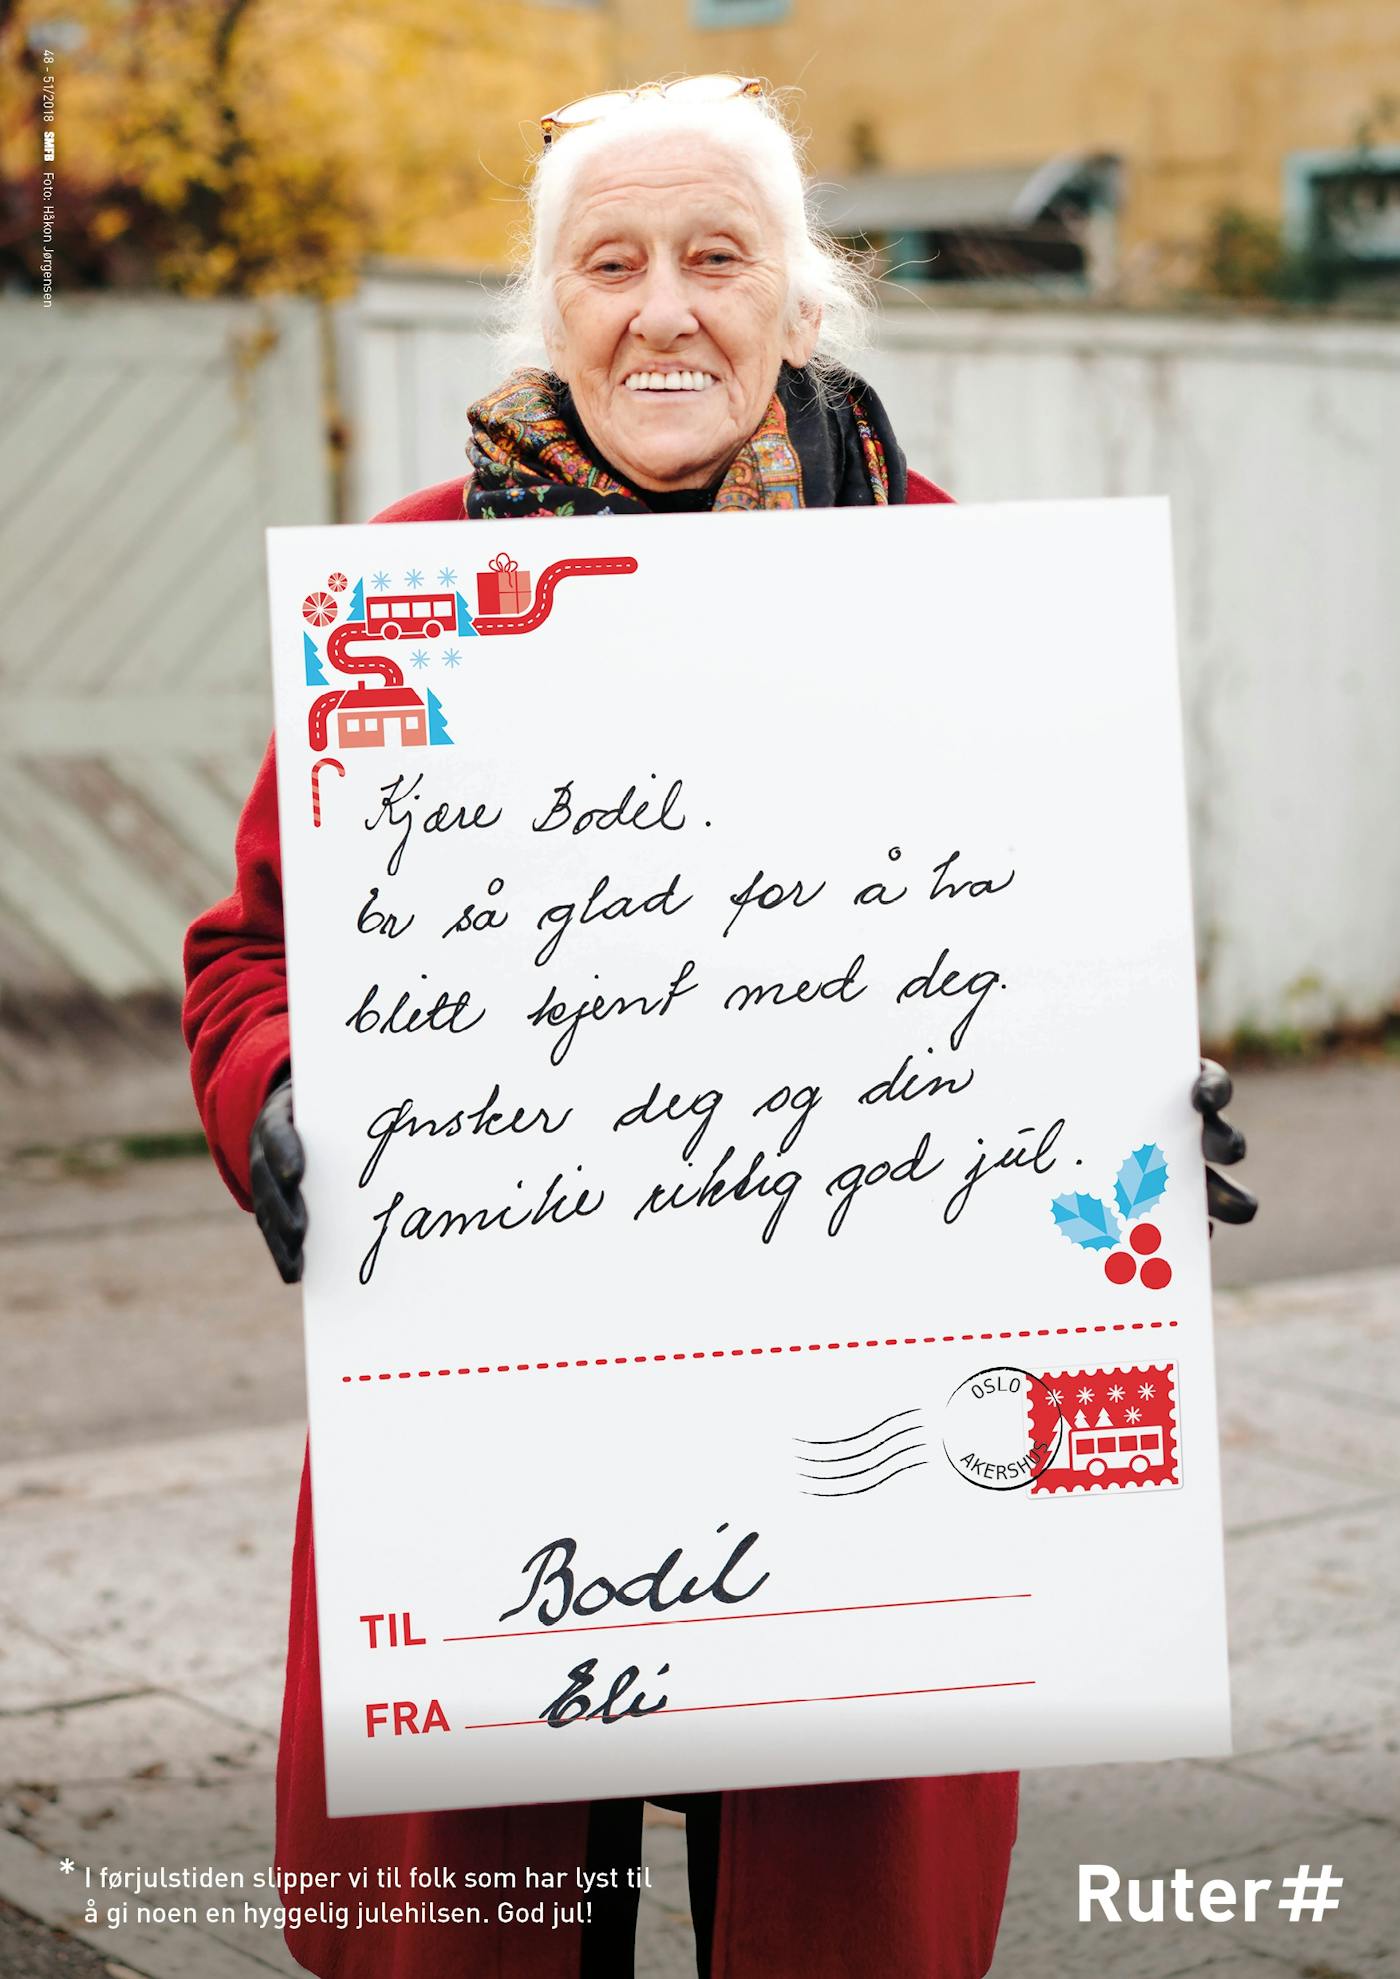 48 - 51/2018 SMFB Foto: Håkon Jørgensen
Kjære Bodil.
Er så glad for å ha
blitt kjent med deg.
Ønsker deg og din
familie riktig god jul.
OSLO
AKERSHUS
TIL Bodil
FRA Eli
* I førjulstiden slipper vi til folk som har lyst til
å gi noen en hyggelig julehilsen. God jul!
Ruter#